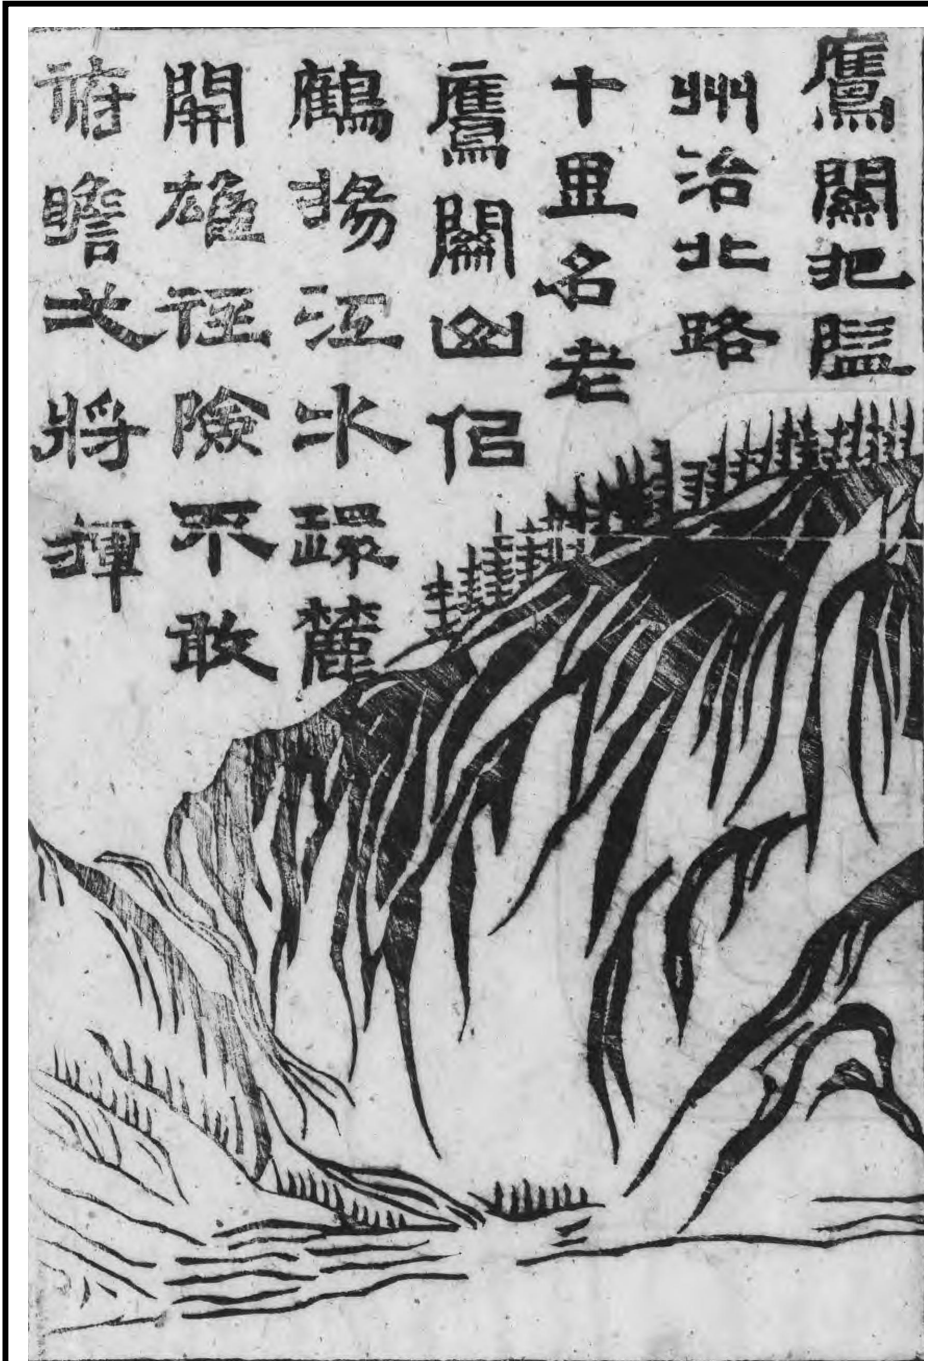 鷹關把隘
州治北路
十里名老
鷹關侶
鶴揚江水環麓
開雄徑險不敢
俯瞻將揮